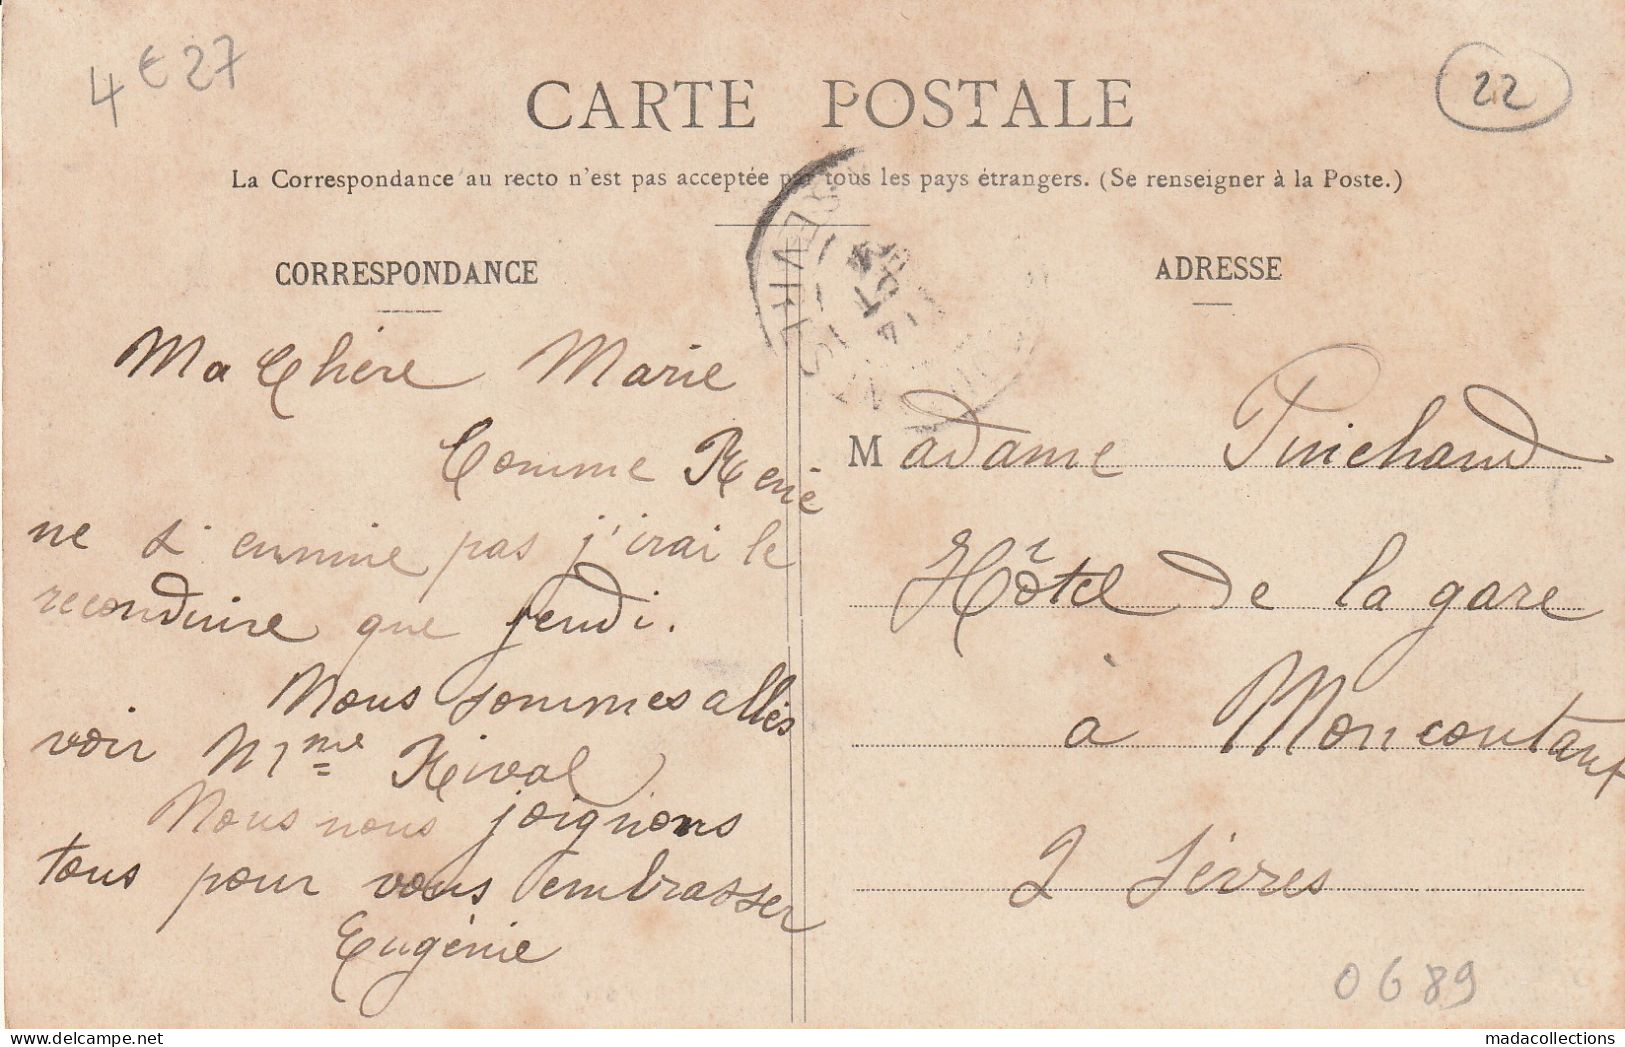 4€27
22
CARTE POSTALE
La Correspondance au recto n'est pas acceptée par tous les pays étrangers. (Se renseigner à la Poste.)
CORRESPONDANCE
Ma Chère Marie
Comme René
ne s'ennuie pas j'irai le
reconduire que jeudi.
Nous sommes allés
voir Mme Rival
Nous nous joignons
tous pour vous embrasser
Eugénie
ADRESSE
Madame
Hôtel de la gare
à Moncoutant
2 Sèvres
0689
madacollections.com